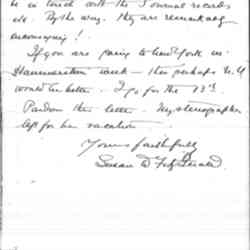 be in touch with the Journal records
etc. By the way, they are remarkably
encouraging!
If you are going to New York in
week – then perhaps N.Y.
would be better. I go for the 13th.
Pardon this letter. My stenographer
left for her vacation.
Yours faithfully
Susan W. FitzGerald